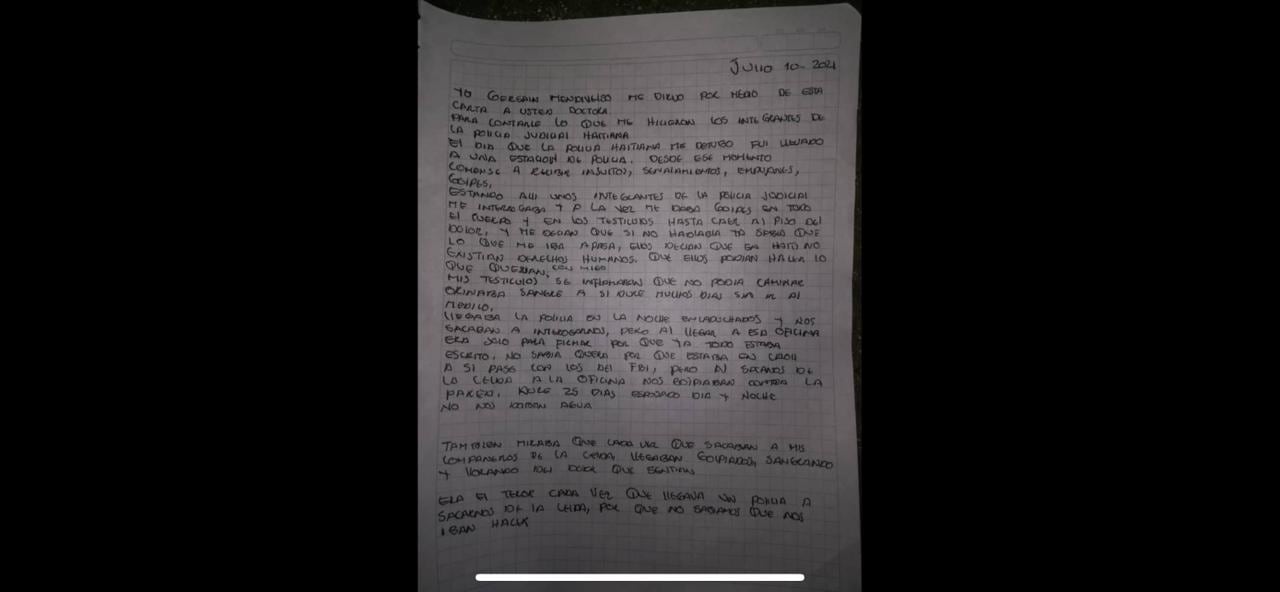 Julio 10- 2021
YO GERSAIN MENDIVELSO ME DIRIJO POR MEDIO DE ESTA
CARTA A USTED DOCTORA
PARA CONTARLE LO QUE ME HICIERON LOS INTEGRANTES DE
LA POLICIA JUDICIAL HAITIANA
EL DIA QUE LA POLICIA HAITIANA ME DETUBO FUI LLEVADO
A UNA ESTACION DE POLICIA. DESDE ESE MOMENTO
COMENSE A RECIBIR INSULTOS, SEÑALAMIENTOS, EMPUJANES,
GOLPES,
ESTANDO ALLI UNOS INTEGRANTES DE LA POLICIA JUDICIAL
ME INTERROGABA Y A LA VEZ ME DABA GOLPES EN TODO
EL CUERPO Y EN LOS TESTICULOS HASTA CAER AL PISO DEL
DOLOR, Y ME DECIAN QUE SI NO HABLABA YA SABIA QUE
LO QUE ME IBA A PASA, ELLOS DECIAN QUE EN HAITI NO
EXISTIAN DERECHOS HUMANOS. QUE ELLOS PODIAN HACER LO
QUE QUERIAN, CON MIGO
MIS TESTICULOS SE INFLAMARON QUE NO PODIA CAMINAR
ORINABA SANGRE A SI DURE MUCHOS DIAS SIN IR AL
MEDICO,
LLEGABA LA POLICIA EN LA NOCHE ENCAPUCHADOS Y NOS
SACABAN A INTERROGARNOS, PERO AL LLEGAR A ESA OFICINA
ERA SOLO PARA FICHAR POR QUE YA TODO ESTABA
ESCRITO, NO SABIA QUERA POR QUE ESTABA EN CADA
A SI PASO CON LOS DEL FBI, PERO AL SACARNOS DE
LA CELDA A LA OFICINA NOS GOLPIABAN CONTRA LA
PARED. DURE 25 DIAS ESPOSADO DIA Y NOCHE
NO NOS DABAN AGUA
TAMBIEN MIRABA QUE CADA VEZ QUE SACABAN A MIS
COMPAÑEROS DE LA CELDA, LLEGABAN GOLPIADOS, SANGRANDO
Y LLORANDO DEL DOLOR QUE SENTIAN
ERA EL TEROR CADA VEZ QUE LLEGAVA UN POLICIA A
SACARNOS DE LA CELDA, POR QUE NO SABIAMOS QUE NOS
IBAN HACER